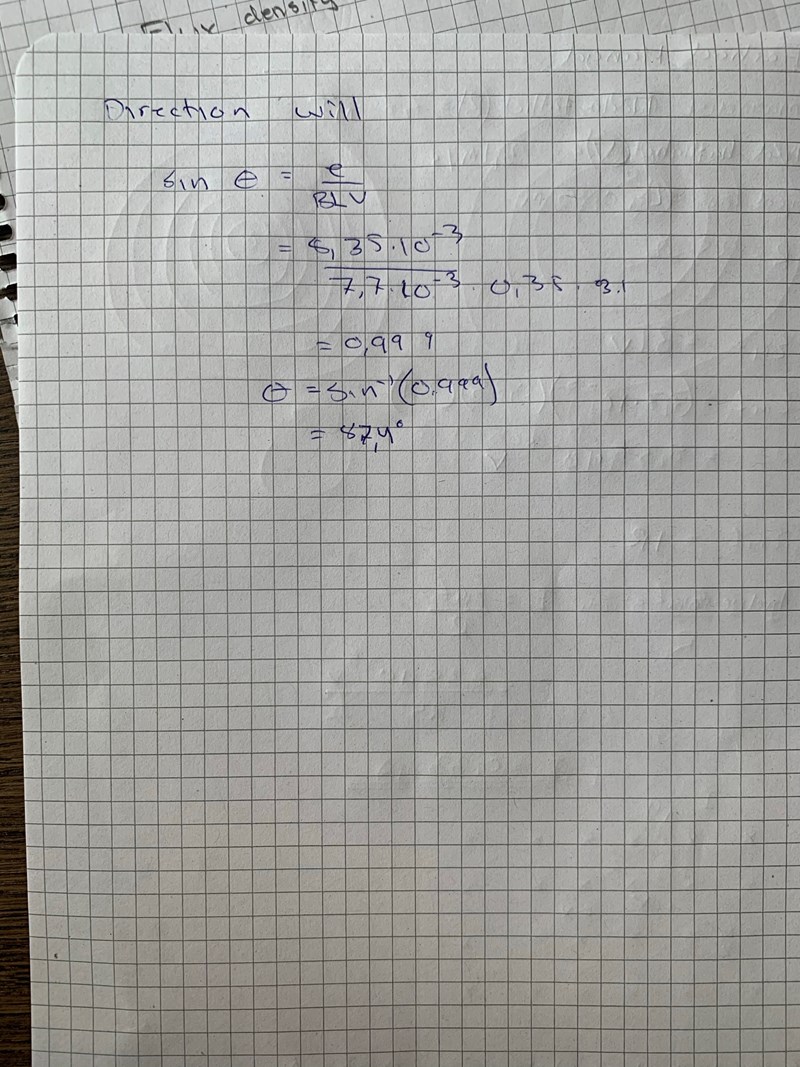 Flux density
Direction will
sin θ = e
BLV
= 8,35.10⁻³
7,7.10⁻³ . 0,35 . 3.1
= 0,999
θ = sin⁻¹(0.999)
= 87,4°